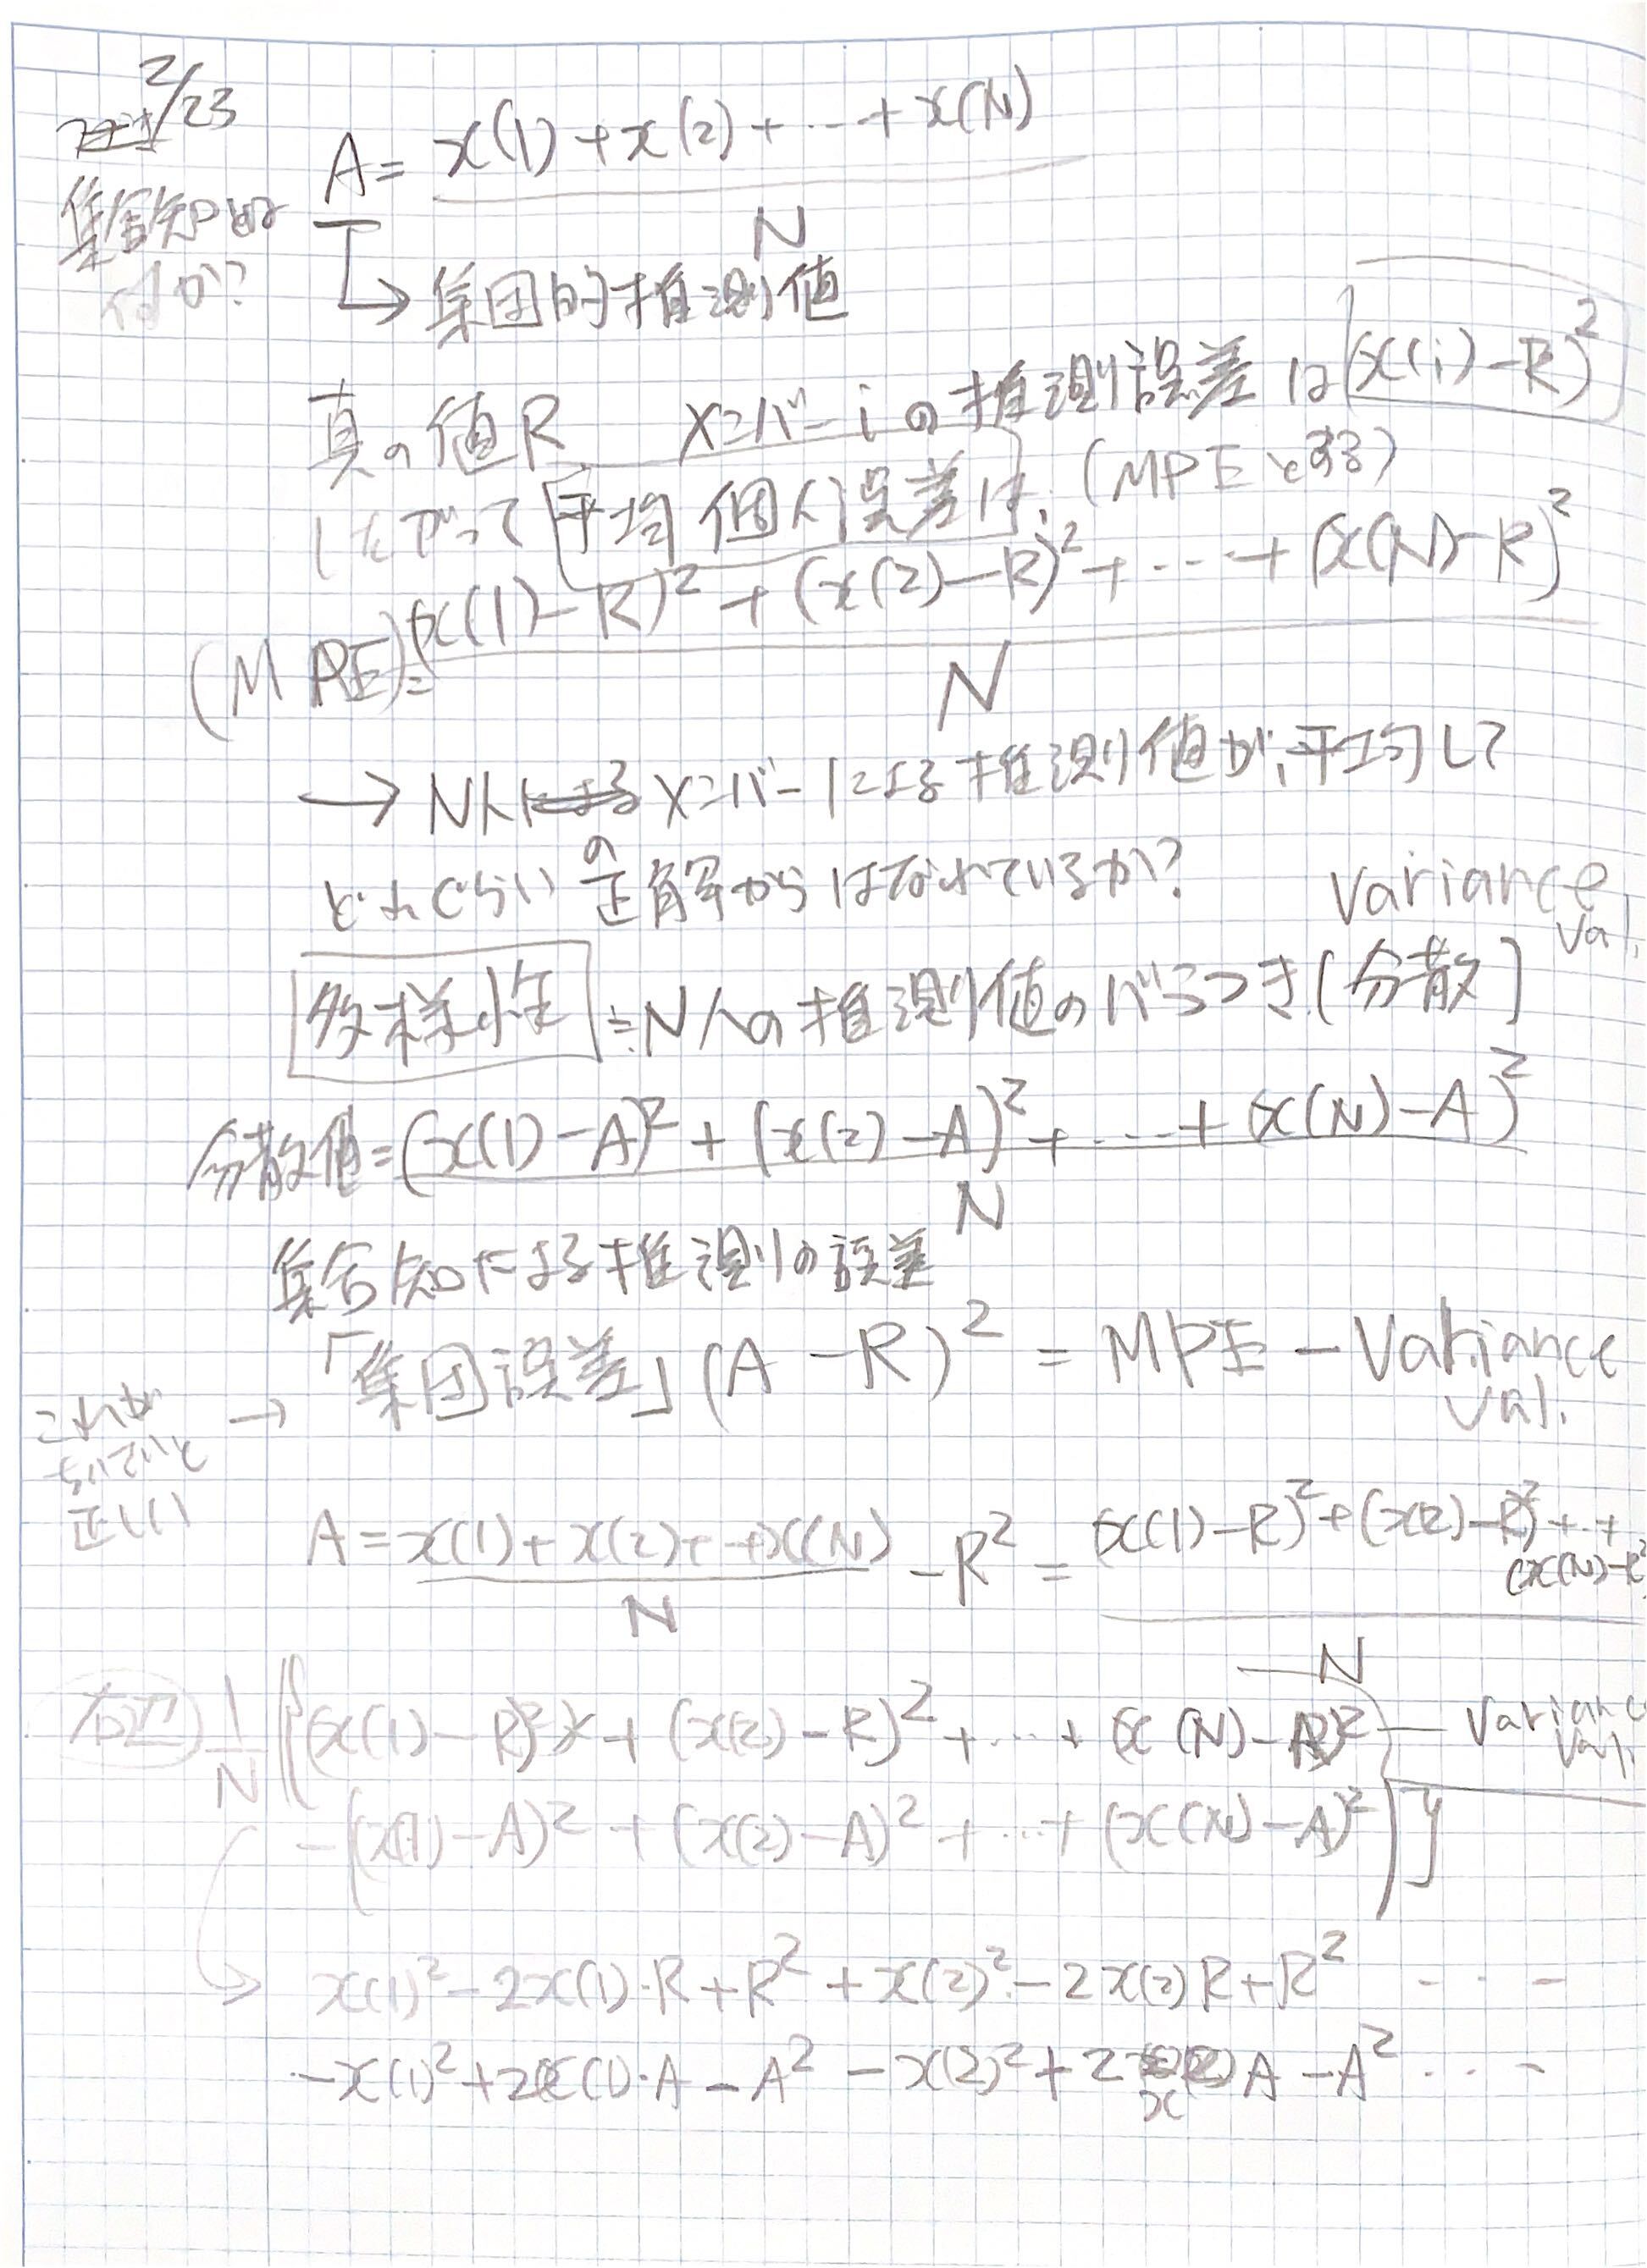 2/23
集合知とは
何か?
A = x(1)+x(2)+‥+x(N)
N
→集団的推測値
真の値R メンバーiの推測誤差は(x(i)-R)²
したがって平均個人誤差は、(MPEとする)
(MPE)= (x(1)-R)² + (x(2)-R)² + ‥‥ + (x(N)-R)²
N
→N人のメンバーによる推測値が、平均して
どれぐらい正解からはなれているか?
variance
val.
多様性 ≒N人の推測値のバラつき(分散)
分散値=(x(1)-A)² + (x(2)-A)² + ‥‥ + (x(N)-A)²
N
集合知による推測の誤差
「集団誤差」(A-R)² = MPE - Variance
val.
これが
正しい
→
A = x(1)+x(2)+‥+x(N) - R² = (x(1)-R)²+(x(2)-R)²+‥+
(x(N)-R²
N N
右辺 1/N {(x(1)-R)² + (x(2)-R)² + ‥‥ + (x(N)-R)² - Varianc
val.
-(x(1)-A)² + (x(2)-A)² + ‥+ (x(N)-A)²)}
x(1)²-2x(1)·R+R²+x(2)²-2x(2)R+R² ‥‥
-x(1)²+2x(1)·A-A²-x(2)²+2x(2)A-A² ‥‥